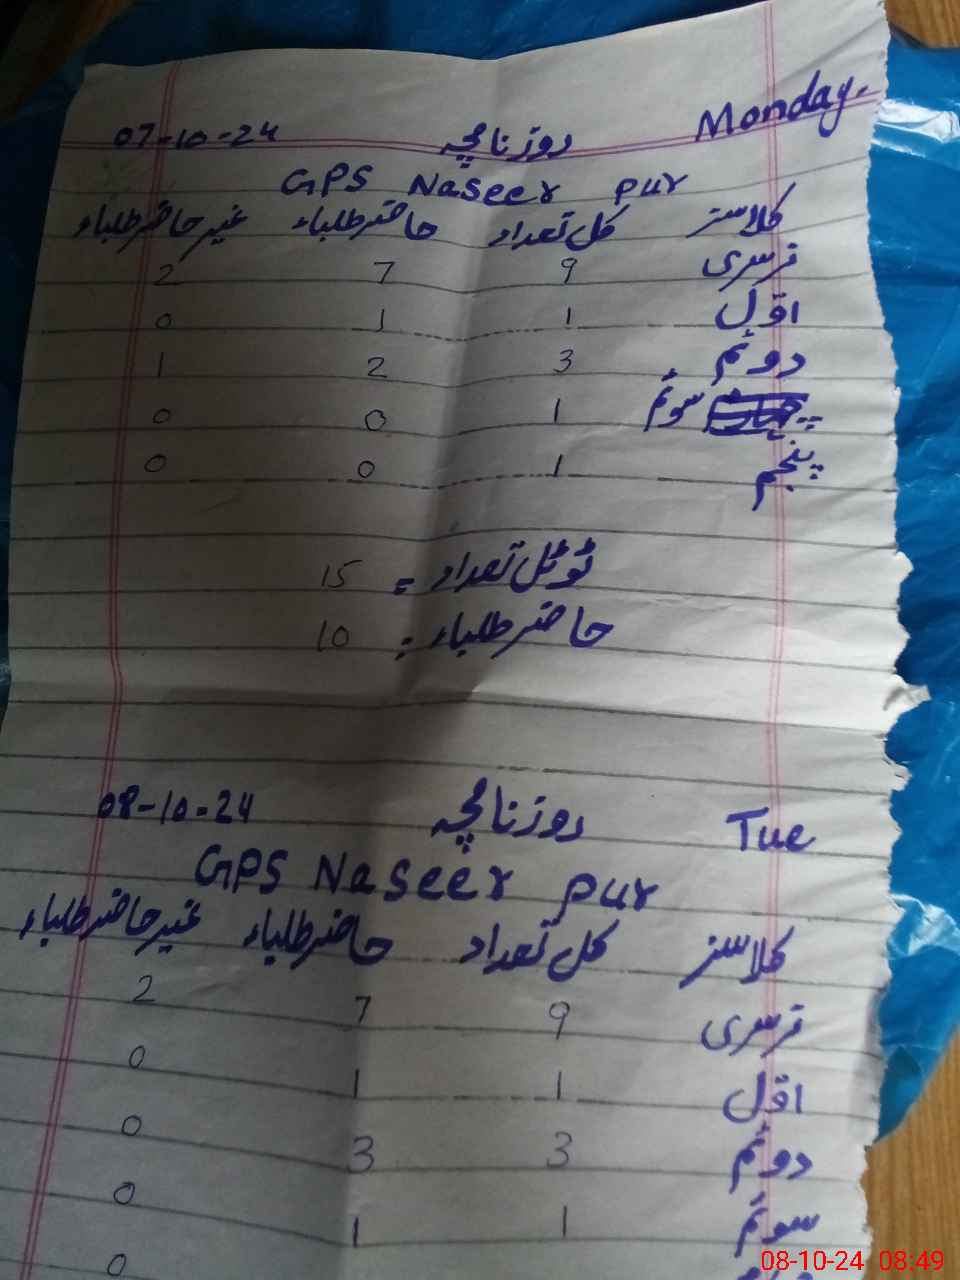 Monday. روزنامچہ 07-10-24
GPS Naseer pur
کلاسز کل تعداد حاضر طلباء غیر حاضر طلباء
نرسری 9 7 2
اوّل 1 1 0
دوئم 3 2 1
سوئم 1 0 0
پنجم 1 0 0
ٹوٹل تعداد = 15
حاضر طلباء : 10
Tue روزنامچہ 08-10-24
GPS Naseer pur
کلاسز کل تعداد حاضر طلباء غیر حاضر طلباء
نرسری 9 7 2
اوّل 1 1 0
دوئم 3 3 0
سوئم 1 1 0
0
08-10-24 08:49